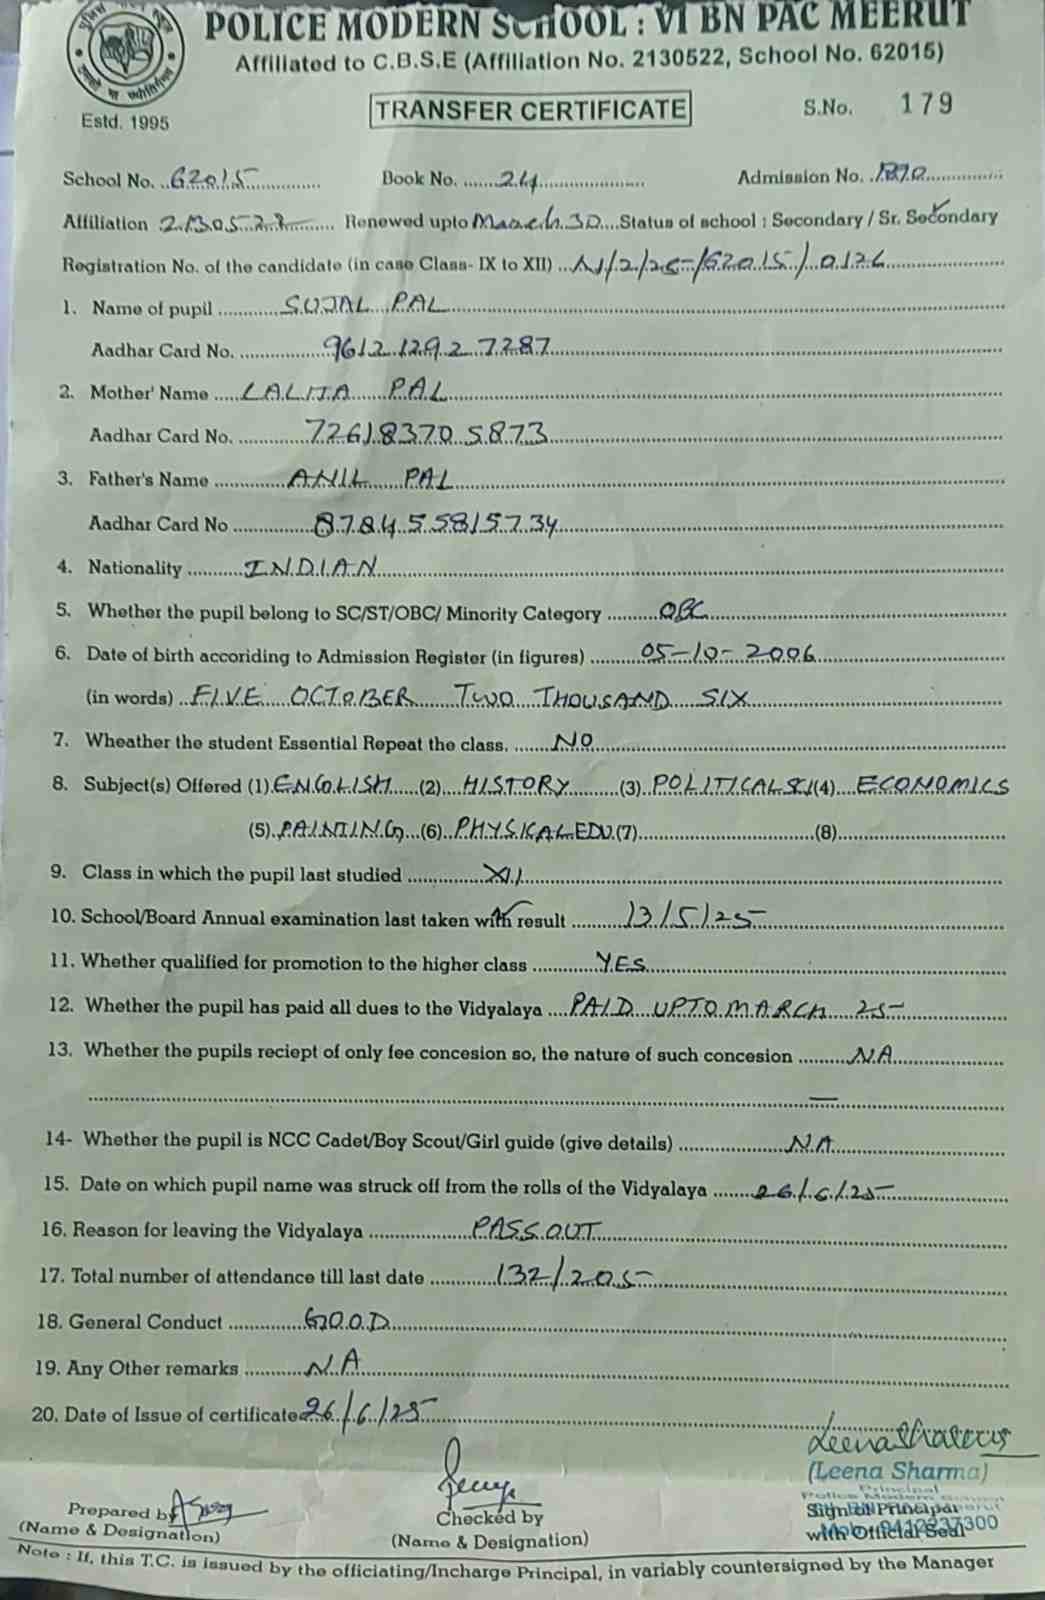 POLICE MODERN SCHOOL : VI BN PAC MEERUT
Affiliated to C.B.S.E (Affiliation No. 2130522, School No. 62015)
Estd. 1995
TRANSFER CERTIFICATE
S.No. 179
School No. 62015 Book No. 24 Admission No. 1870
Affiliation Renewed upto March 30 Status of school : Secondary / Sr. Secondary
Registration No. of the candidate (in case Class- IX to XII) /62015/0126
1. Name of pupil SUJAL PAL
Aadhar Card No. 9612 1292 7287
2. Mother' Name LALITA PAL
Aadhar Card No. 7261 8370 5873
3. Father's Name ANIL PAL
Aadhar Card No 8784 5581 5734
4. Nationality INDIAN
5. Whether the pupil belong to SC/ST/OBC/ Minority Category OBC
6. Date of birth accoriding to Admission Register (in figures) 05-10-2006
(in words) FIVE OCTOBER TWO THOUSAND SIX
7. Wheather the student Essential Repeat the class. NO
8. Subject(s) Offered (1) ENGLISH (2) HISTORY (3) POLITICAL SCI (4) ECONOMICS
(5) PAINTING (6) PHYSICAL EDU. (7) (8)
9. Class in which the pupil last studied XII
10. School/Board Annual examination last taken with result 13/5/25
11. Whether qualified for promotion to the higher class YES
12. Whether the pupil has paid all dues to the Vidyalaya PAID UPTO MARCH 25
13. Whether the pupils reciept of only fee concesion so, the nature of such concesion N.A
14- Whether the pupil is NCC Cadet/Boy Scout/Girl guide (give details) N.A.
15. Date on which pupil name was struck off from the rolls of the Vidyalaya 26/6/25
16. Reason for leaving the Vidyalaya PASS OUT
17. Total number of attendance till last date 132/205
18. General Conduct GOOD
19. Any Other remarks N.A
20. Date of Issue of certificate 26/6/25
(Leena Sharma)
Principal
Police Modern School
Prepared by
(Name & Designation)
Checked by
(Name & Designation)
Sign of Principal
with Official Seal
Note : If, this T.C. is issued by the officiating/Incharge Principal, in variably countersigned by the Manager